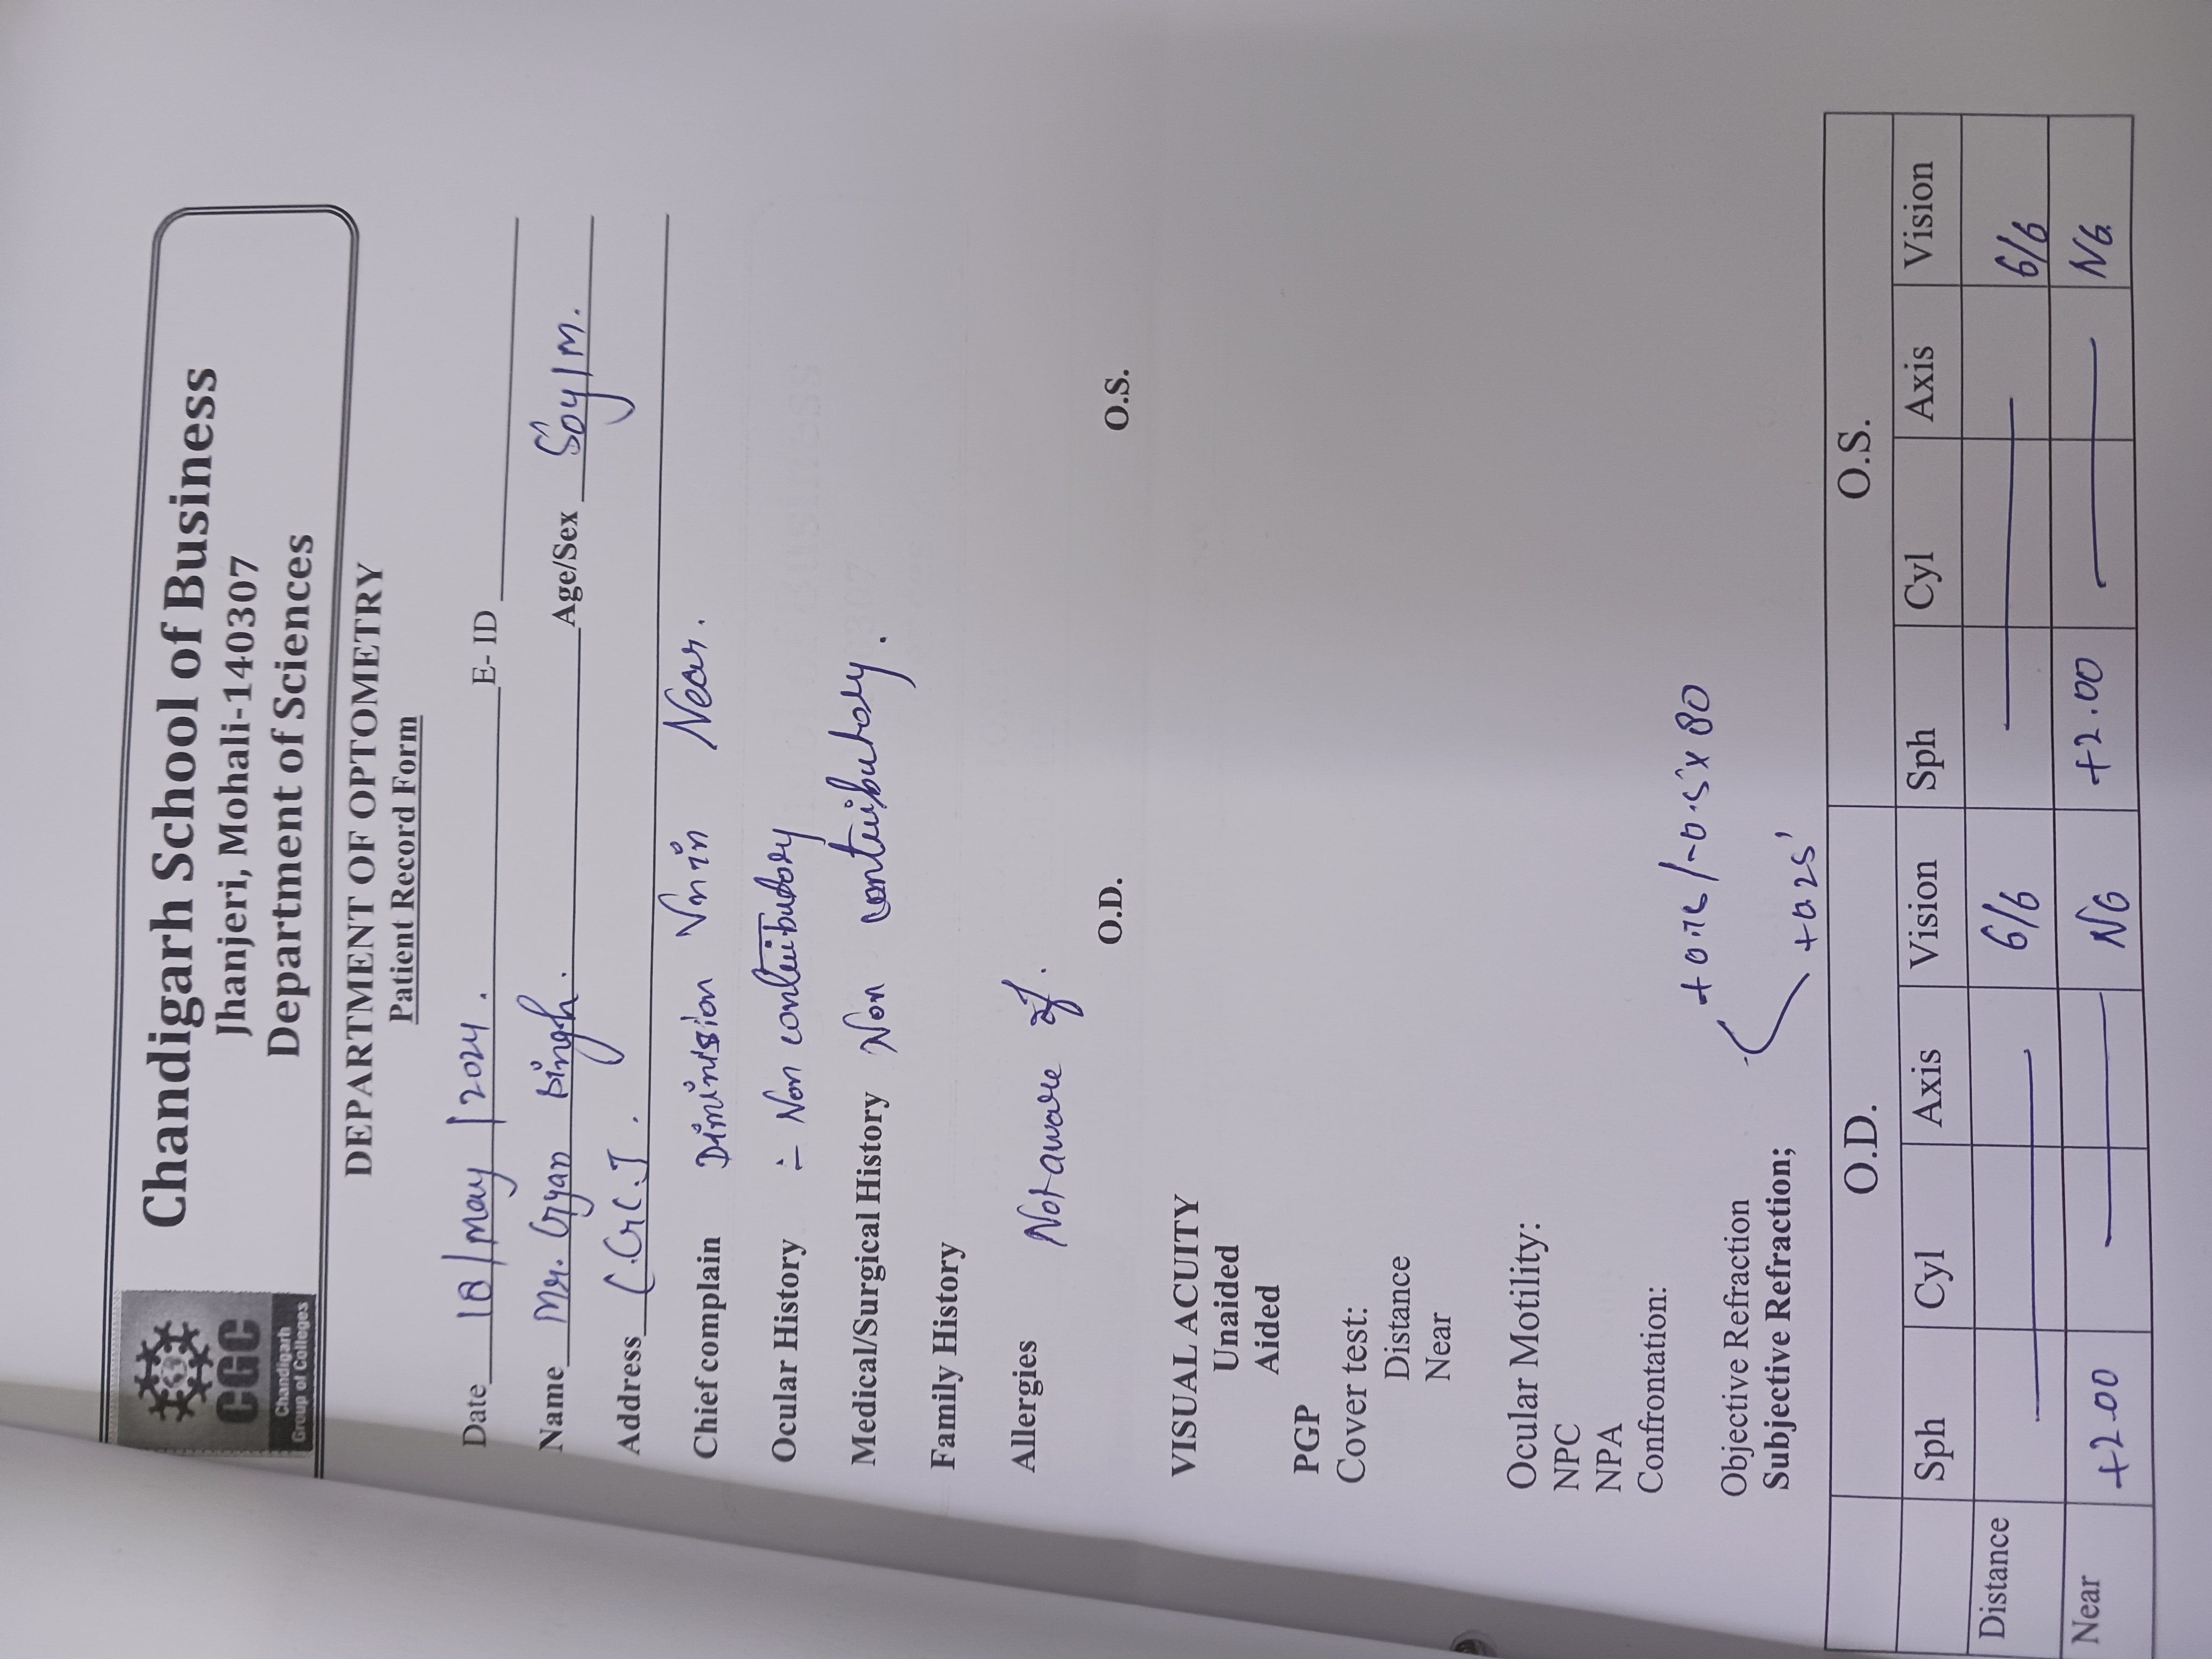 CGC
Chandigarh
Group of Colleges
Chandigarh School of Business
Jhanjeri, Mohali-140307
Department of Sciences
DEPARTMENT OF OPTOMETRY
Patient Record Form
Date 18/may/2024. E- ID
Name Mr. Gyan Singh. Age/Sex 50y/M.
Address C.G.C.J.
Chief complain Diminision Vn in Near.
Ocular History :- Non contributory
Medical/Surgical History Non contributory.
Family History
Allergies Not aware of.
O.D. O.S.
VISUAL ACUITY
Unaided
Aided
PGP
Cover test:
Distance
Near
Ocular Motility:
NPC
NPA
Confrontation:
+0.75/-0.5 x 80
Objective Refraction
Subjective Refraction;
+0.25
O.D. O.S.
Sph Cyl Axis Vision Sph Cyl Axis Vision
Distance 6/6 6/6
Near +2.00 N6 +2.00 N6